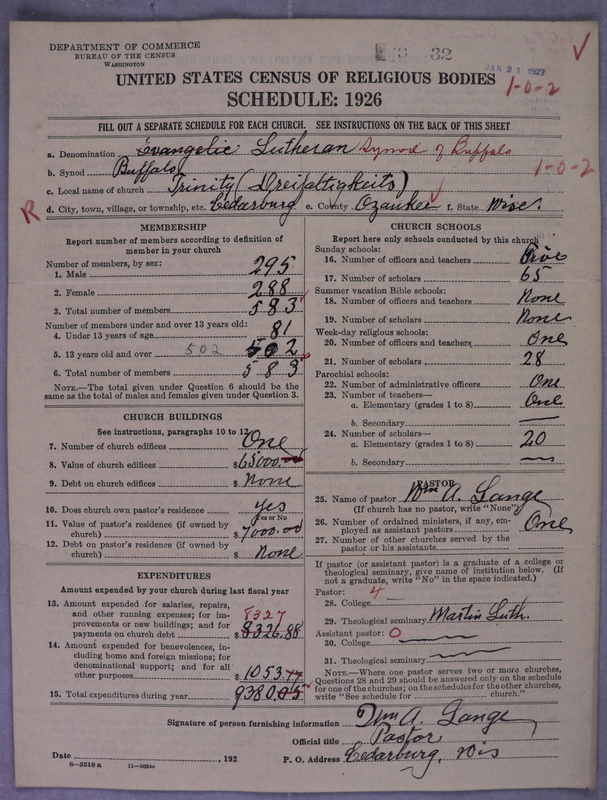 DEPARTMENT OF COMMERCE
BUREAU OF THE CENSUS
WASHINGTON
32
JAN 21 1927
UNITED STATES CENSUS OF RELIGIOUS BODIES
1-0-2
SCHEDULE: 1926
FILL OUT A SEPARATE SCHEDULE FOR EACH CHURCH. SEE INSTRUCTIONS ON THE BACK OF THIS SHEET
a. Denomination Evangelic Lutheran Synod of Buffalo
b. Synod Buffalo 1-0-2
c. Local name of church Trinity (Dreifaltigkeits)
R d. City, town, village, or township, etc. Cedarburg e. County Ozaukee f. State Wisc.
MEMBERSHIP
Report number of members according to definition of
member in your church
Number of members, by sex:
1. Male 295
2. Female 288
3. Total number of members 583
Number of members under and over 13 years old:
4. Under 13 years of age 81
5. 13 years old and over 502 502
6. Total number of members 583
NOTE.—The total given under Question 6 should be
same as the total of males and females given under Question 3.
CHURCH BUILDINGS
See instructions, paragraphs 10 to 12
7. Number of church edifices One
8. Value of church edifices $65000.00
9. Debt on church edifices $ None
10. Does church own pastor's residence yes
Yes or No
11. Value of pastor's residence (if owned by
church) $7000.00
12. Debt on pastor's residence (if owned by
church) $ None
EXPENDITURES
Amount expended by your church during last fiscal year
13. Amount expended for salaries, repairs,
and other running expenses; for im-
provements or new buildings; and for
payments on church debt 8327 $8326.88
14. Amount expended for benevolences,
including home and foreign missions; for
denominational support; and for all
other purposes $1053.
15. Total expenditures during year 9380.05
CHURCH SCHOOLS
Report here only schools conducted by this church
Sunday schools:
16. Number of officers and teachers Five
17. Number of scholars 65
Summer vacation Bible schools:
18. Number of officers and teachers None
19. Number of scholars None
Week-day religious schools:
20. Number of officers and teachers One
21. Number of scholars 28
Parochial schools:
22. Number of administrative officers One
23. Number of teachers—
a. Elementary (grades 1 to 8) One
b. Secondary
24. Number of scholars—
a. Elementary (grades 1 to 8) 20
b. Secondary
PASTOR
25. Name of pastor Wm A. Lange
(If church has no pastor, write "None")
26. Number of ordained ministers, if any, em-
ployed as assistant pastors One
27. Number of other churches served by the
pastor or his assistants
If pastor (or assistant pastor) is a graduate of a college or
theological seminary, give name of institution below. (If
not a graduate, write "No" in the space indicated.)
Pastor: 4
28. College
29. Theological seminary Martin Luth.
Assistant pastor: 0
30. College
31. Theological seminary
NOTE.—Where one pastor serves two or more churches,
Questions 28 and 29 should be answered only on the schedule
for one of the churches; on the schedules for the other churches,
write "See schedule for church."
Signature of person furnishing information Wm A. Lange
Official title Pastor
Date , 192 P. O. Address Cedarburg, Wis
8-5518a 11-9664a